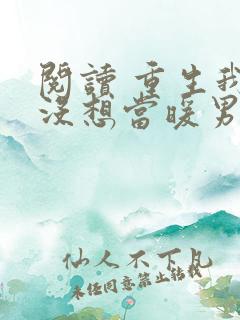 閱讀 重生我
沒想當暖男
仙人不下凡
未經同意禁止轉載